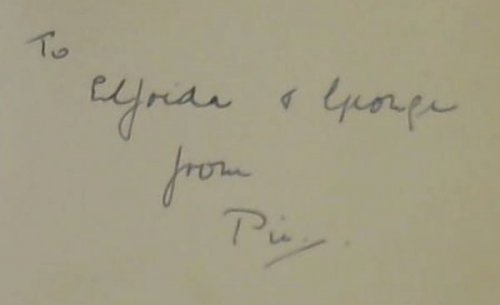 To
Elfrida & George
from
Pin.